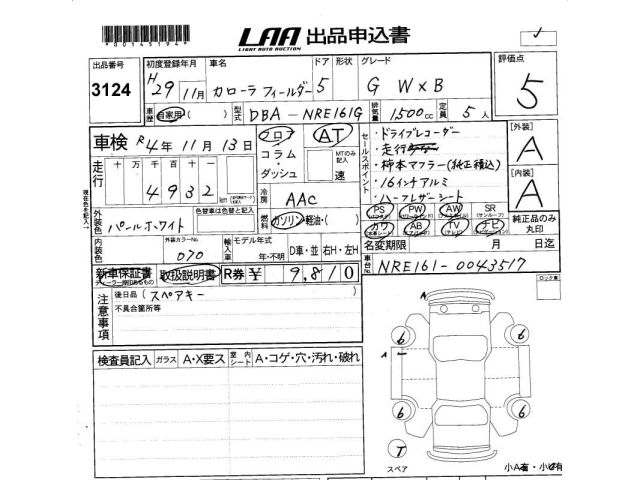 *00145194*
LAA 出品申込書
LIGHT AUTO AUCTION
出品番号 初度登録年月 車名 ドア 形状 グレード 評価点
3124 H29年11月 カローラ フィールダー 5 G W×B 5
車歴 自家用 ( ) 型式 DBA-NRE161G 排気量 1500cc 定員 5人
車検 R4年11月13日 フロア コラム・ダッシュ AT MTのみ記入 速
セールスポイント
・ドライブレコーダー
・走行
・柿本マフラー(純正積込)
・16インチアルミ
・ハーフレザーシート
[外装]
A
[内装]
A
走行 十万千百十
4932km
現在色を記入
冷房 AAC
外装色 パールホワイト 色替車は色替と記入
燃料 ガソリン・軽油・( )
PS PW AW SR
(サンルーフ)
カワ AB TV ナビ
純正品のみ丸印
内装色 外装カラーNo. 070 輸入車 モデル年式 年・不明 D車・並 右H・左H
名変期限 月 日迄
新車保証書 取扱説明書 R券 ¥ 9,810
車台No. NRE161-0043517
注意事項
後日品 (スペアキー )
不具合箇所等
ロック車
検査員記入 ガラス A・X要ス 室内シート A・コゲ・穴・汚れ・破れ
A
A
6 6
6 6
T
スペア
小A有・小U有